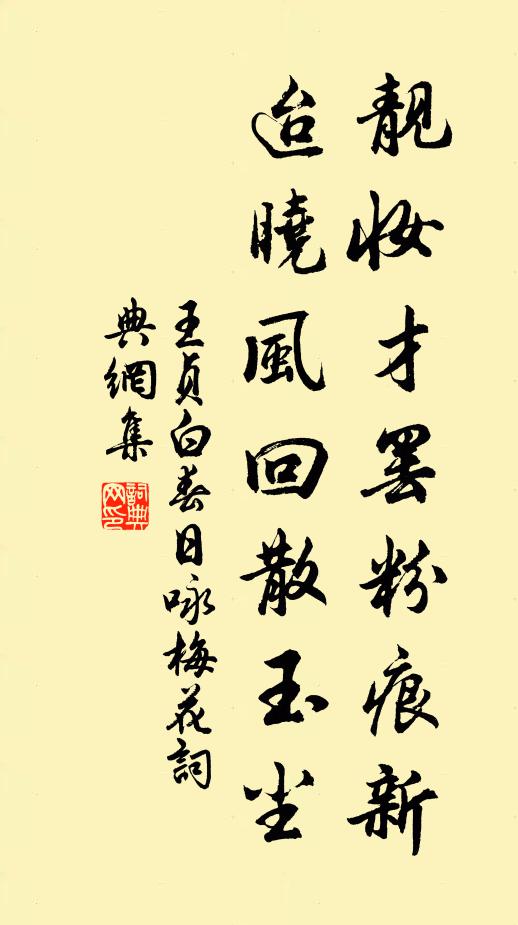 靚妆才罷粉痕新
迨曉風回散玉尘
王貞白春日咏梅花詞
典網集
詞典
网印